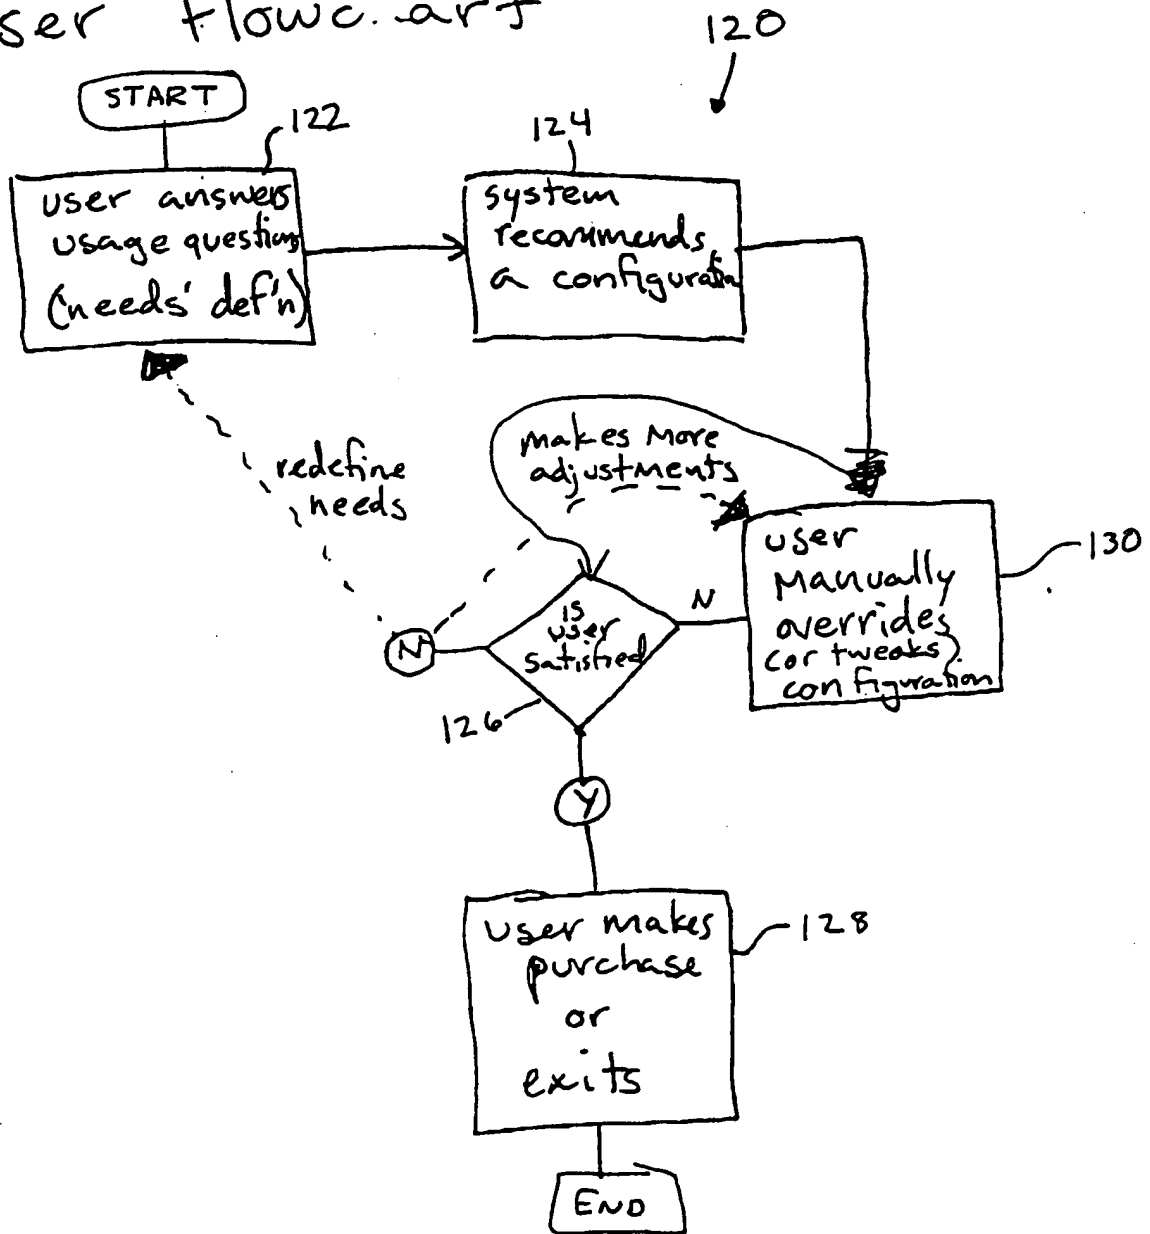 ser flowc.art
120
START
122
124
user answers
usage questions
('needs' def'n)
system
recommends
a configuration
makes more
adjustments
redefine
needs
user
manually
overrides
(or tweaks)
configuration
130
N
is
user
satisfied
N
126
Y
user makes
purchase
or
exits
128
END